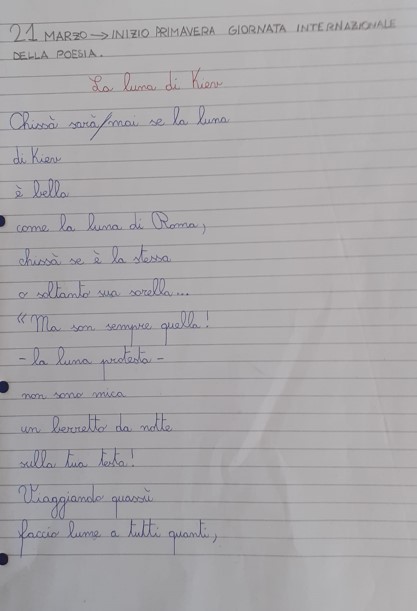 21 MARZO → INIZIO PRIMAVERA GIORNATA INTERNAZIONALE
DELLA POESIA.
La luna di Kiev
Chissà sarà/mai se la luna
di Kiev
è bella
come la luna di Roma,
chissà se è la stessa
o soltanto sua sorella...
"Ma son sempre quella!
- la luna protesta -
non sono mica
un berretto da notte
sulla tua testa!
Viaggiando quassù
faccio lume a tutti quanti,